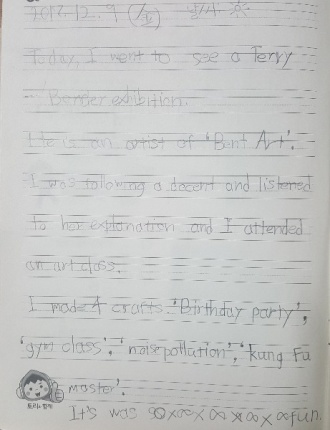 2017. 12. 9 (토) 날씨:
Today, I went to see a Terry
Border exhibition.
He is an artist of 'Bent Art'.
I was following a docent and listened
to her explanation and I attended
an art class.
I made 4 crafts. 'Birthday party',
'gym class', 'noise pollution', 'kung Fu
master'.
It's was so ∞x∞x∞x∞x∞fun.